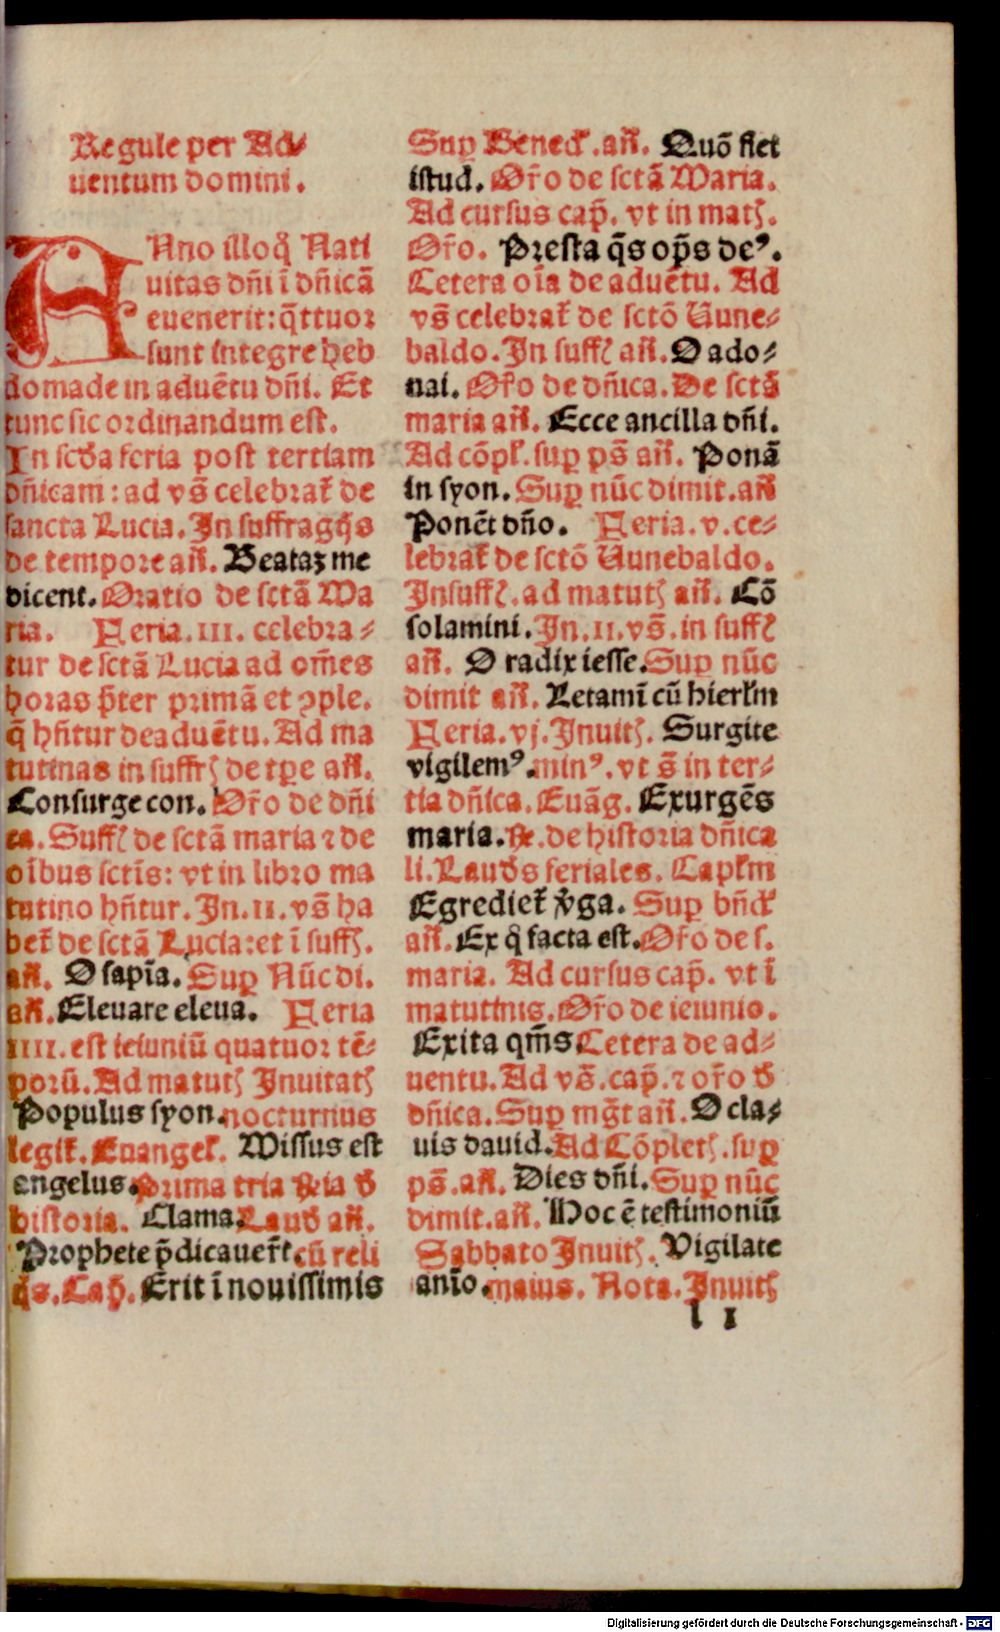 Regule per Ad⸗
uentum domini.
ANno illo qͦ Nati
uitas dn̄i ī dn̄icā
euenerit: q̄ttuor
sunt integre heb
domade in aduētu dn̄i. Et
tunc sic ordinandum est.
In scd̄a feria post tertiam
dn̄icam: ad vs̄ celebrat̄ de
sancta Lucia. In suffragijs
de tempore an̄. Beataꝫ me
dicent. Oratio de sctā Ma
ria. Feria. III. celebra⸗
tur de sctā Lucia ad om̄es
horas p̄ter primā et ꝯple.
q̄ hn̄tur de aduētu. Ad ma
tutinas in suffrꝭ de tp̄e an̄.
Consurge con. Or̄o de dn̄i
ca. Suffꝭ de sctā maria ⁊ de
oībus sctīs: vt in libro ma
tutino hn̄tur. In. II. vs̄ ha
bet̄ de sctā Lucia: et ī suffꝭ.
an̄. O sapīa. Suꝑ Nūc di.
an̄. Eleuare eleua. Feria
IIII. est ieiuniū quatuor tē⸗
porū. Ad matutꝭ Inuitatꝭ
Populus syon. nocturnus
legit̄. Euangel̄. Missus est
angelus. Prima tria ℟ia ď
historia. Clama. Laud̄ an̄.
Prophete p̄dicauer̄t. cū reli
qͥs. Cap̄. Erit ī nouissimis
Suꝑ Bened̄. an̄. Quō fiet
istud. Or̄o de sctā Maria.
Ad cursus cap̄. vt in matꝭ.
Or̄o. Presta q̄s op̄s deꝰ.
Cetera oīa de aduētu. Ad
vs̄ celebrat̄ de sctō Vune⸗
baldo. In suffꝭ an̄. O ado⸗
nai. Or̄o de dn̄ica. De sctā
maria an̄. Ecce ancilla dn̄i.
Ad cōpl̄. suꝑ ps̄ an̄. Ponā
in syon. Suꝑ nūc dimit. an̄
Ponēt dn̄o. Feria. v. ce⸗
lebrat̄ de sctō Vunebaldo.
In suffꝭ. ad matutꝭ an̄. Cō
solamini. In. II. vs̄. in suffꝭ
an̄. O radix iesse. Suꝑ nūc
dimit an̄. Letamī cū hierl̄m
Feria. vj. Inuitꝭ. Surgite
vigilemꝰ. minꝰ. vt s̄ in ter⸗
tia dn̄ica. Euāg. Exurgēs
maria. ℟. de historia dn̄ica
li. Laud̄s feriales. Capl̄m
Egrediet̄ v̄ga. Suꝑ bn̄d̄
an̄. Ex qͣ facta est. Or̄o de s.
maria. Ad cursus cap̄. vt ī
matutinis. Or̄o de ieiunio.
Exita qm̄s. Cetera de ad⸗
uentu. Ad vs̄. cap̄. ⁊ or̄o ď
dn̄ica. Suꝑ mḡt an̄. O cla⸗
uis dauid. Ad Cōpletꝭ. suꝑ
ps̄. an̄. Dies dn̄i. Suꝑ nūc
dimit. an̄. Hoc ē testimoniū
Sabbato Inuitꝭ. Vigilate
anīo. maius. Nota. Inuitꝭ
l I
Digitalisierung gefördert durch die Deutsche Forschungsgemeinschaft - DFG